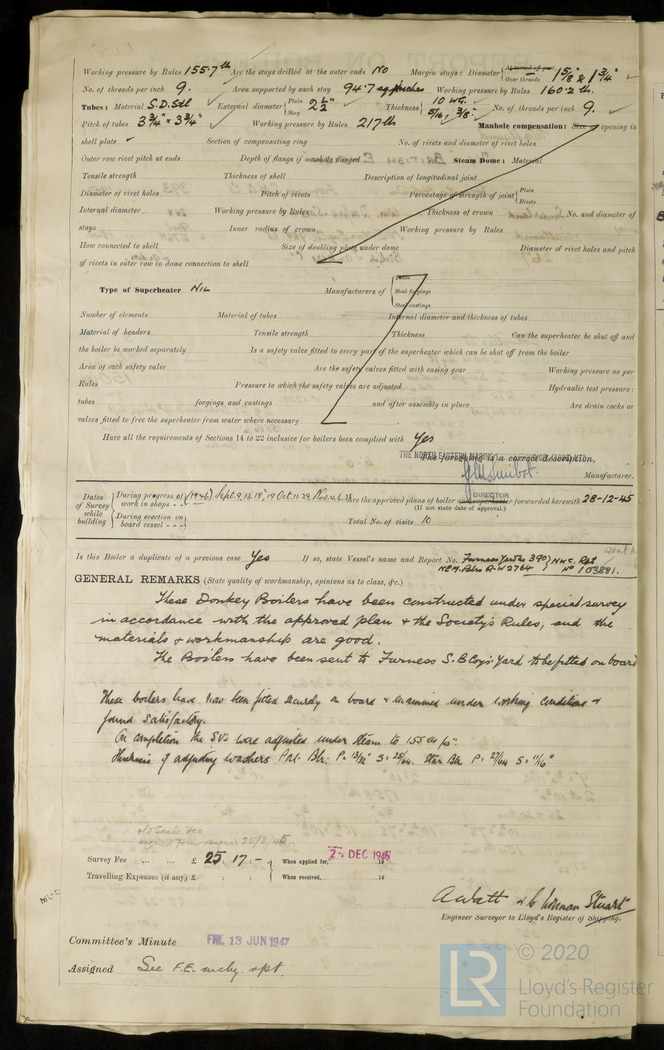 Working pressure by Rules 155.7 lb Are the stays drilled at the outer ends No Margin stays: Diameter { Over threads 1 5/8" & 1 3/4"
No. of threads per inch 9. Area supported by each stay 94.7 sq inches Working pressure by Rules 160.2 lb.
Tubes: Material S.D.Stl External diameter { Plain Stay 2 1/2" Thickness { 10 WG. 5/16, 3/8" No. of threads per inch 9.
Pitch of tubes 3 3/4" × 3 3/4" Working pressure by Rules 217 lb Manhole compensation: Size of opening in
shell plate Section of compensating ring No. of rivets and diameter of rivet holes
Outer row rivet pitch at ends Depth of flange if manhole flanged Steam Dome: Material
Tensile strength Thickness of shell Description of longitudinal joint
Diameter of rivet holes Pitch of rivets Percentage of strength of joint { Plate Rivets
Internal diameter Working pressure by Rules Thickness of crown No. and diameter of
stays Inner radius of crown Working pressure by Rules
How connected to shell Size of doubling plate under dome Diameter of rivet holes and pitch
of rivets in outer row in dome connection to shell
Type of Superheater NIL Manufacturers of { Tubes Steel forgings Steel castings
Number of elements Material of tubes Internal diameter and thickness of tubes
Material of headers Tensile strength Thickness Can the superheater be shut off and
the boiler be worked separately Is a safety valve fitted to every part of the superheater which can be shut off from the boiler
Area of each safety valve Are the safety valves fitted with easing gear Working pressure as per
Rules Pressure to which the safety valves are adjusted Hydraulic test pressure:
tubes forgings and castings and after assembly in place Are drain cocks or
valves fitted to free the superheater from water where necessary
Have all the requirements of Sections 14 to 22 inclusive for boilers been complied with Yes
THE NORTH EASTERN MARINE
The foregoing is a correct description,
Manufacturer.
DIRECTOR
Dates of Survey while building { During progress of work in shops - - (1946) Sept 9, 13, 18, 19 Oct 11. 29, Nov. Are the approved plans of boiler and superheater forwarded herewith 28-12-45
(If not state date of approval.)
During erection on board vessel - - - Total No. of visits 10
Is this Boiler a duplicate of a previous case Yes If so, state Vessel's name and Report No. Furness Yard No 390 } NWC. Rpt
NEM. Blrs R-W 2764 } No 103881.
GENERAL REMARKS (State quality of workmanship, opinions as to class, &c.)
These Donkey Boilers have been constructed under special survey
in accordance with the approved plan & the Society's Rules, and the
materials & workmanship are good.
The Boilers have been sent to Furness S.B Coy's Yard to be fitted on board
These boilers have has been fitted securely on board & examined under working conditions &
found satisfactory.
On completion the SVs were adjusted under steam to 155
Thickness of adjusting washers Prt. Blr. P. 13/32" S. 25/64. Star Blr P. 27/64 S. 11/16"
Survey Fee ... ... £ 25 : 17 : - When applied for, 24 DEC 1946 19
Travelling Expenses (if any) £ : : When received, 19
A Watt & C Norman Stuart
Engineer Surveyor to Lloyd's Register of Shipping.
Committee's Minute FRI. 13 JUN 1947
Assigned See F.E. mchy. rpt.
© 2020
LR
Lloyd's Register
Foundation